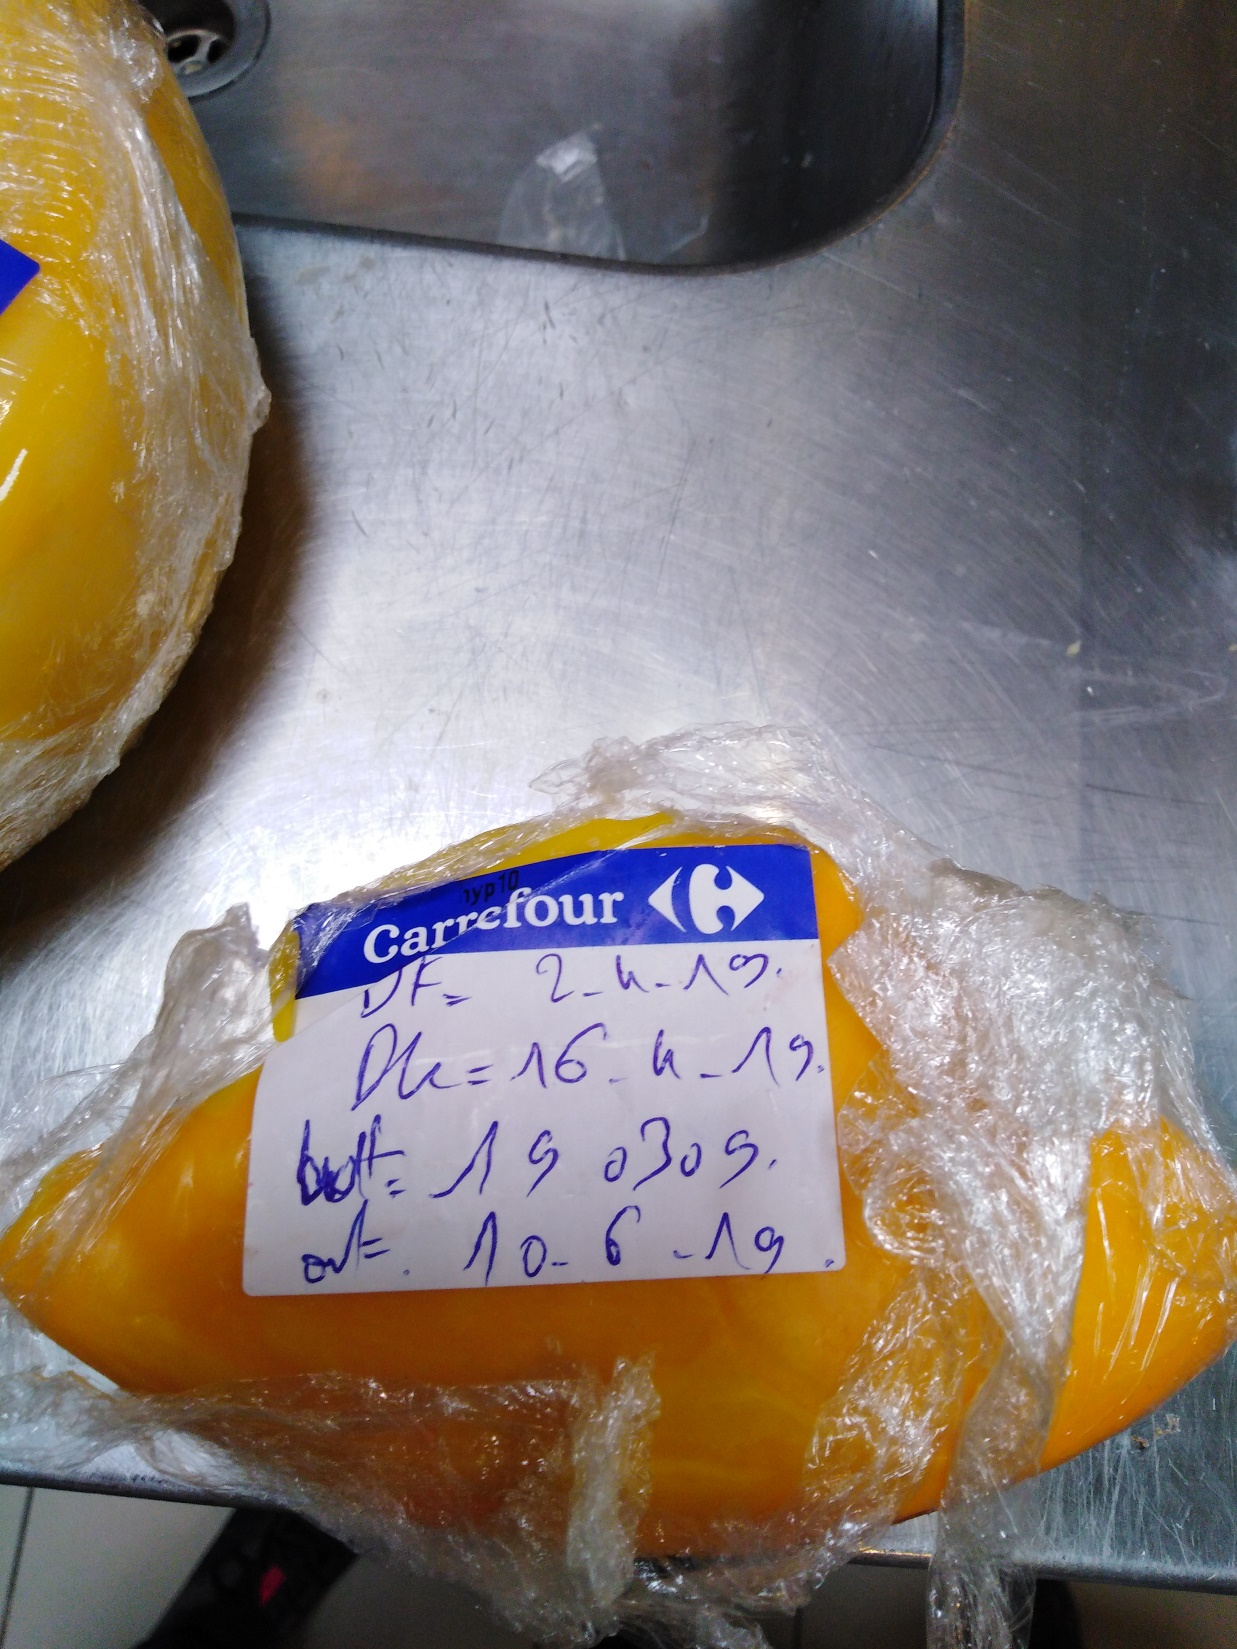 typ10
Carrefour
DF= 2-4-19.
DLC=16-4-19.
190309.
10-6-19.